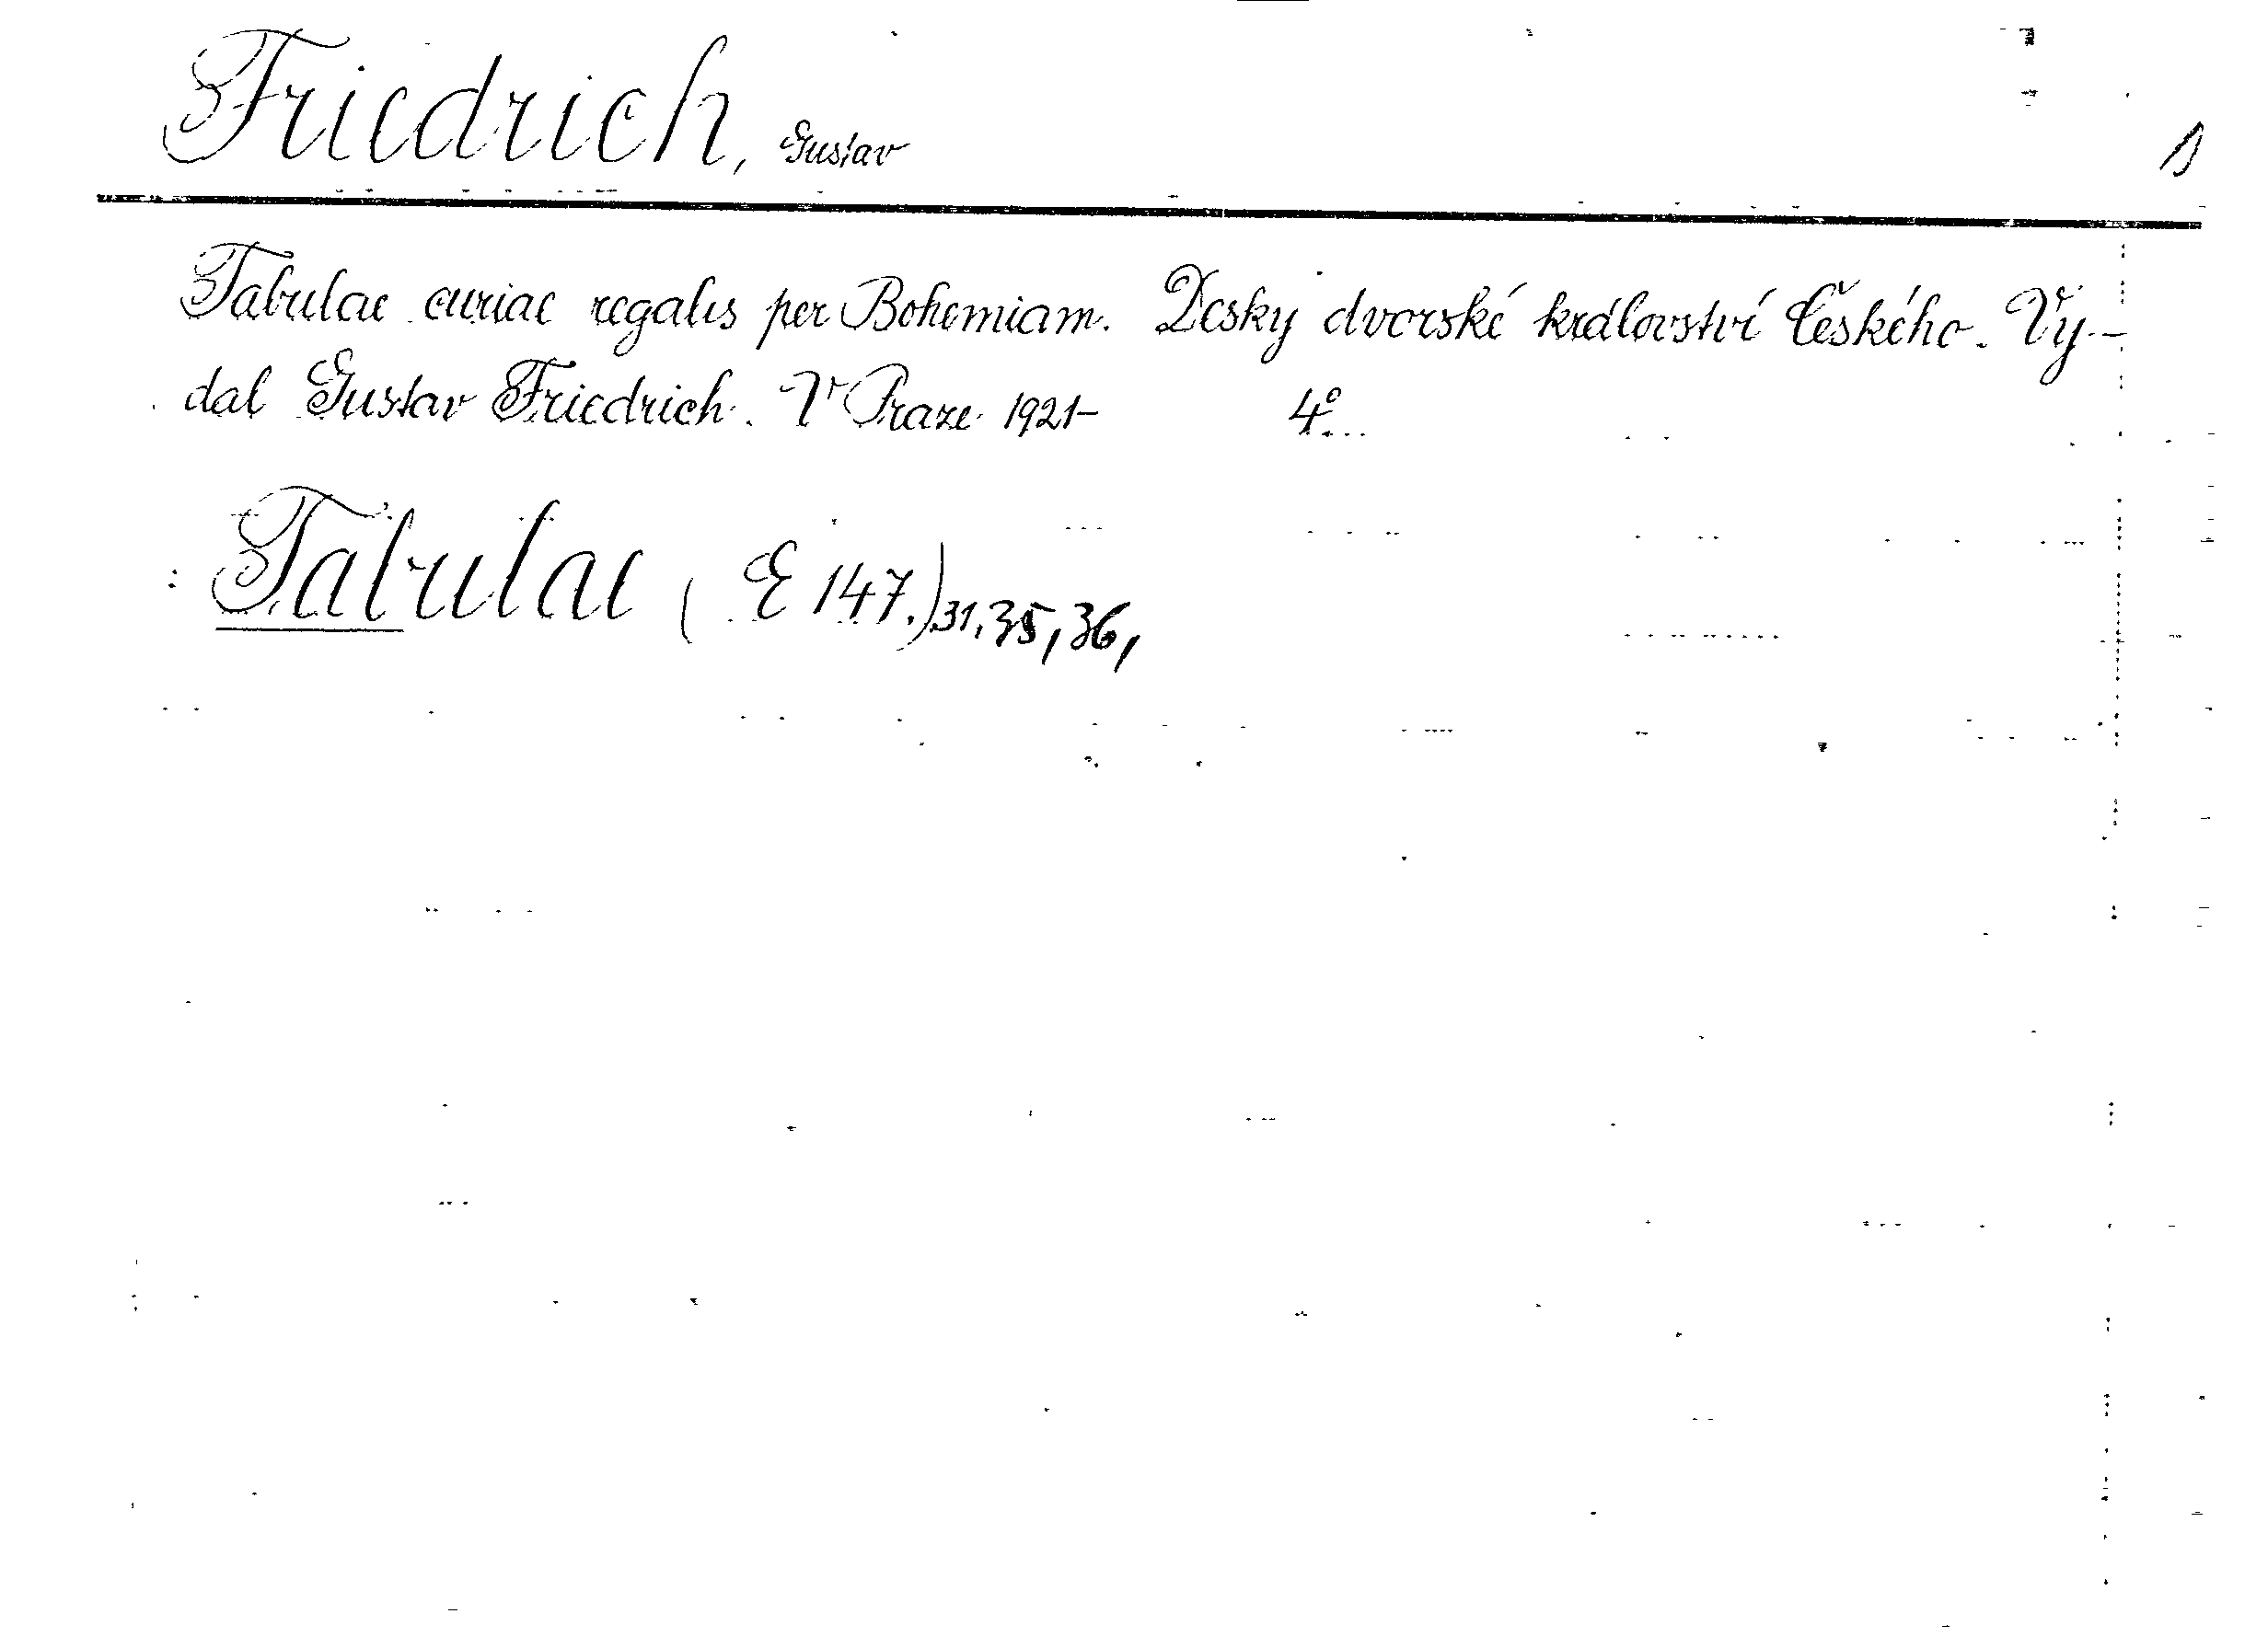 Friedrich, Gustav
Tabulae curiae regalis per Bohemiam. Desky dvorské království Českého. Vy-
dal Gustav Friedrich. V Praze 1921- 4º
Tabulae (E 147.) 31, 35, 36,